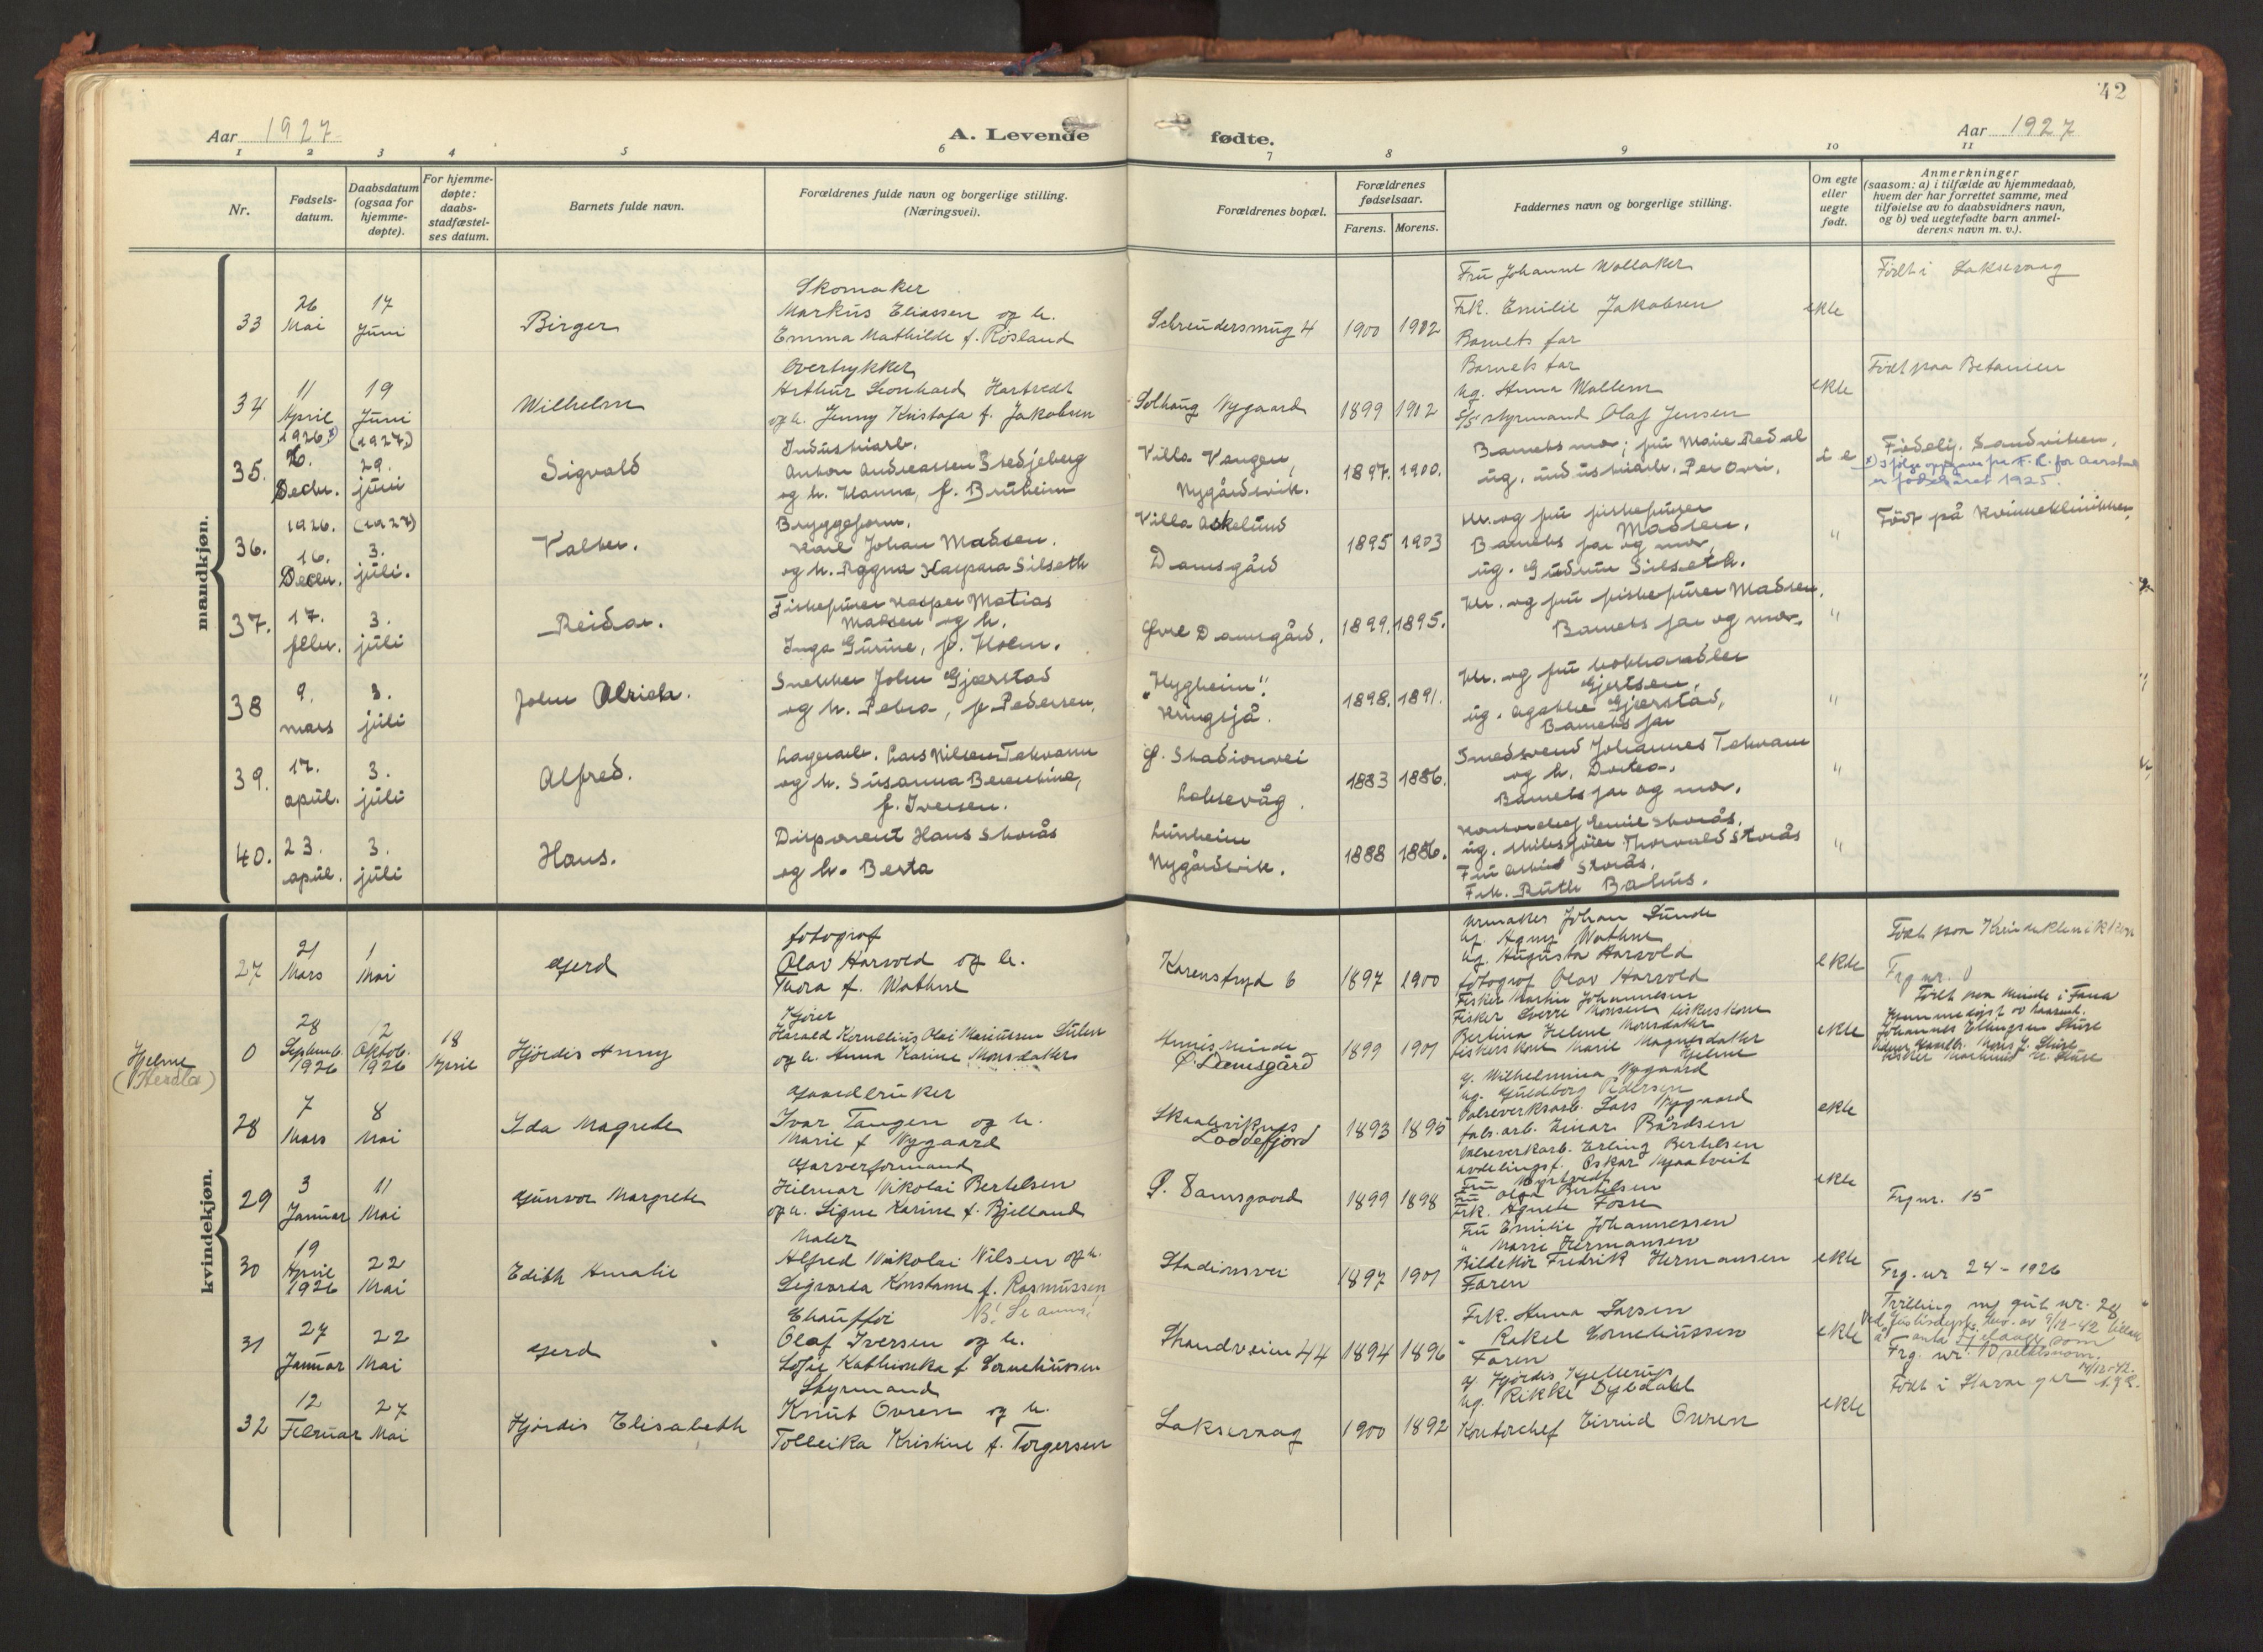 42
Aar 1927
A. Levende
fødte.
Aar 1927
1 2 3 4 5 6 7 8 9 10 11
Nr.
Fødsels-
datum.
Daabsdatum
(ogsaa for
hjemme-
døpte).
For hjemme-
døpte:
daabs-
stadfæstel-
ses datum.
Barnets fulde navn.
Forældrenes fulde navn og borgerlige stilling.
(Næringsvei).
Forældrenes bopæl.
Forældrenes
fødselsaar.
Farens. Morens.
Faddernes navn og borgerlige stilling.
Om egte
eller
uegte
født.
Anmerkninger
(saasom: a) i tilfælde av hjemmedaab,
hvem der har forrettet samme, med
tilføielse av to daabsvidners navn,
og b) ved uegtefødte barn anmel-
derens navn m. v.).
mandkjøn.
33
26
Mai
17
Juni
Birger
Skomaker
Markus Eliassen og h.
Emma Mathilde f. Røsland
Schreudersmug 4
1900 1902
Fru Johanne Wollaker
Frk. Emilie Jakobsen
Barnets far
ekte
Født i Laksevaag
34
11
April
19
Juni
Wilhelm
Overtrykker
Arthur Leonhard Hartvedt
og h. Jenny Kristofa f. Jakobsen
Solhaug Nygaard
1899 1902
Barnets far
ug. Anna Mollem
styrmand Olaf Jensen
ekte
Født paa Betanien
35.
1926 x)
Decbr.
(1927)
29.
juni
Sigvald
Industriarb.
Anton Andreassen Stedjeberg
og h. Hanna, f. Bruheim
Villa Vangen,
Nygårdsvik.
1897. 1900.
Barnets mor; fru Marie Redal
ug. industriarb. Per Ovri.
Fødselsj. Sandviken.
er fødselsåret 1925.
36.
1926.
16.
Decbr.
(1927)
3.
juli.
Valter.
Bryggeform.
Karl Johan Madsen.
og h. Aggna Kaspara Silseth
Villa Askelund
Damsgård
1895 1903
Hr. og fru fiskefører
Madsen.
Barnets far og mor,
ug. Gudrun Silseth.
"
Født på Kvinneklinikken.
37.
17.
febr.
3.
juli
Reidar.
Fiskefører Kasper Matias
Madsen og h.
Inga Gurine, f. Holm.
Øvre Damsgård.
1899. 1895.
Hr. og fru fiskefører Madsen.
Barnets far og mor.
"
38
9.
mars
3.
juli
John Alrich.
Snekker John Gjærstad
og h. Petra, f. Pedersen.
"Hygheim".
Kringsjå.
1898. 1891.
Hr. og fru bokhandler
Gjertsen,
ug. Agathe Gjærstad,
Barnets far
"
39.
17.
april.
3.
juli
Alfred.
Lagerarb. Lars Nilsen Tekvam
og h. Susanna Berentine,
f. Iversen.
Ø. Stadionvei
Laksevåg.
1883 1886.
Smedsvend Johannes Tekvam
og h. Dortea.
Barnets far og mor.
"
40.
23.
april.
3.
juli
Hans.
Disponent Hans Storås
og h. Berta
Lunheim
Nygårdsvik.
1888 1886.
Kontorchef Emil Storås,
ug. Thorvald Storås
Fru Storås.
Frk. Ruth Bahus.
"
kvindekjøn.
27
21
Mars
1
Mai
Gerd
fotograf
Olav Harvold og h.
Thora f. Wathne
Karenstryd 6
1897 1900
Urmaker Johan Sunde
ug. Agny Wathne
ug. Augusta Harvold
fotograf Olav Harvold
ekte
Født paa Kvindeklinikken
Frg nr. 0
Hjelme
(Herdla)
0
28
Septemb.
1926
12
Oktob.
1926
18
April
Hjørdis Anny
Kjører
Harald Kornelius Olai Mariussen Stuben
og h. Anna Karine Monsdatter
Minde
Ø. Damsgård
1899 1901
Fisker Martin Johannesen
Fisker Sverre Monsen fiskerskone
Bertina Helene Monsdatter
fiskerskone Marie Magnesdatter
Hjelme
ekte
Født paa Minde i Fana
Hjemmedøpt av
Johannes Ellingsen Sture
28
7
Mars
8
Mai
Ida Magrete
Gaardbruker
Ivar Tangen og h.
Marie f. Nygaard
Skaalevikens
Loddefjord
1893 1895
g. Wilhelmina Nygaard
ug. Guldborg Pedersen
Valseverksarb. Lars Nygaard
fabr.arb. Einar Bårdsen
ekte
29
3
Januar
11
Mai
Gunvor Margrete
Garverformand
Hilmar Nikolai Bertelsen
og h. Signe Karine f. Bjelland
Ø. Damsgaard
1899 1898
Valseverkarb. Erling Bertelsen
avdelingsf. Oskar Mjaatveit
Fru Olga Bertelsen
Frk. Agnete Fosse
ekte
Frg nr. 15
30
19
April
1926
22
Mai
Edith Amalie
Maler
Alfred Nikolai Nilsen og h.
Sigvarda Konstanse f. Rasmussen
Stadionsvei
1897 1901
Fru Emilie Johannessen
" Marie Hermansen
Fredrik Hermansen
Faren
ekte
Frg. nr 24 - 1926
31
27
Januar
22
Mai
Gerd
Chauffør NB! Se anm!
Olaf Iversen og h.
Sofie Kathinka f. Corneliussen
Strandveien 44
1894 1896
Frk. Anna Larsen
" Rakel Corneliussen
Faren
ekte
Tvilling m/ gut nr. 28
Frg. nr. 10
32
12
Februar
27
Mai
Hjørdis Elisabeth
Styrmand
Knut Ovren og h.
Tolleika Kristine f. Torgersen
Laksevaag
1900 1892
g. Hjørdis Kjellerup
ug. Rikke Dybdahl
Kontorchef Eivind Ovren
ekte
Født i Stavanger